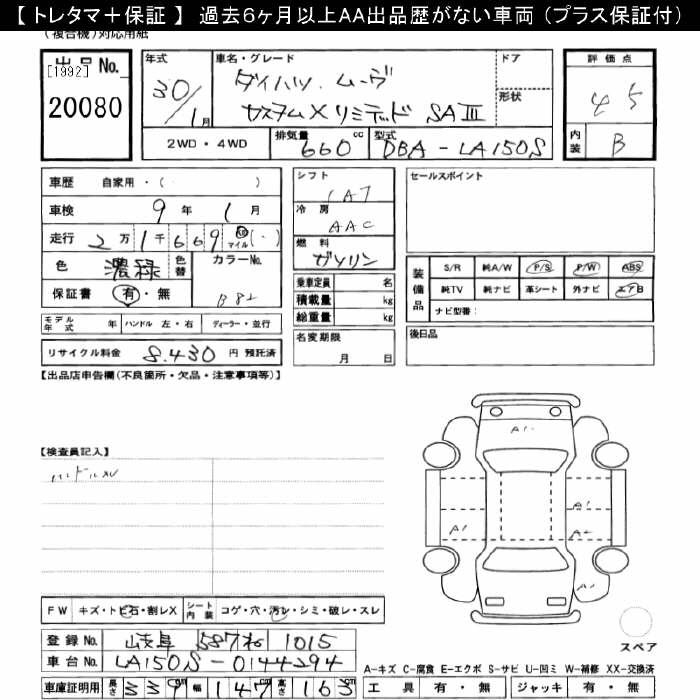 【 トレタマ＋保証 】 過去6ヶ月以上AA出品歴がない車両 (プラス保証付)
(複合機)対応用紙
出品No. [1992] 20080
年式 30/1月
車名・グレード ダイハツ ムーヴ
カスタムX リミテッド SAⅢ
ドア
形状
2WD・4WD 排気量 660 cc 型式 DBA-LA150S
評価点 4 5
内装 B
車歴 自家用・( )
車検 9年 1月
走行 2万1千669 Km マイル (・)
色 濃緑 色替 カラーNo.
保証書 有・無 B82
モデル年式 年 ハンドル 左・右 ディーラー・並行
リサイクル料金 8.430 円 預託済
シフト IAT
冷房 AAC
燃料 ガソリン
乗車定員 名
積載量 kg
総重量 kg
名変期限
月 日
セールスポイント
装備品 S/R 純A/W P/S P/W ABS
純TV 純ナビ 革シート 外ナビ エアB
ナビ型番:
後日品
【出品店申告欄(不良箇所・欠品・注意事項等)】
【検査員記入】
A1
A1
A1
A2
FW キズ・トビ石・割レX シート内装 コゲ・穴・汚レ・シミ・破レ・スレ
登録No. 岐阜 587 1015
車台No. LA150S-0144294
車庫証明用 長さ 339 cm 幅 147 cm 高さ 163 cm
スペア
A−キズ C−腐食 E−エクボ S−サビ U−凹ミ W−補修 XX−交換済
工具 有・無 ジャッキ 有・無